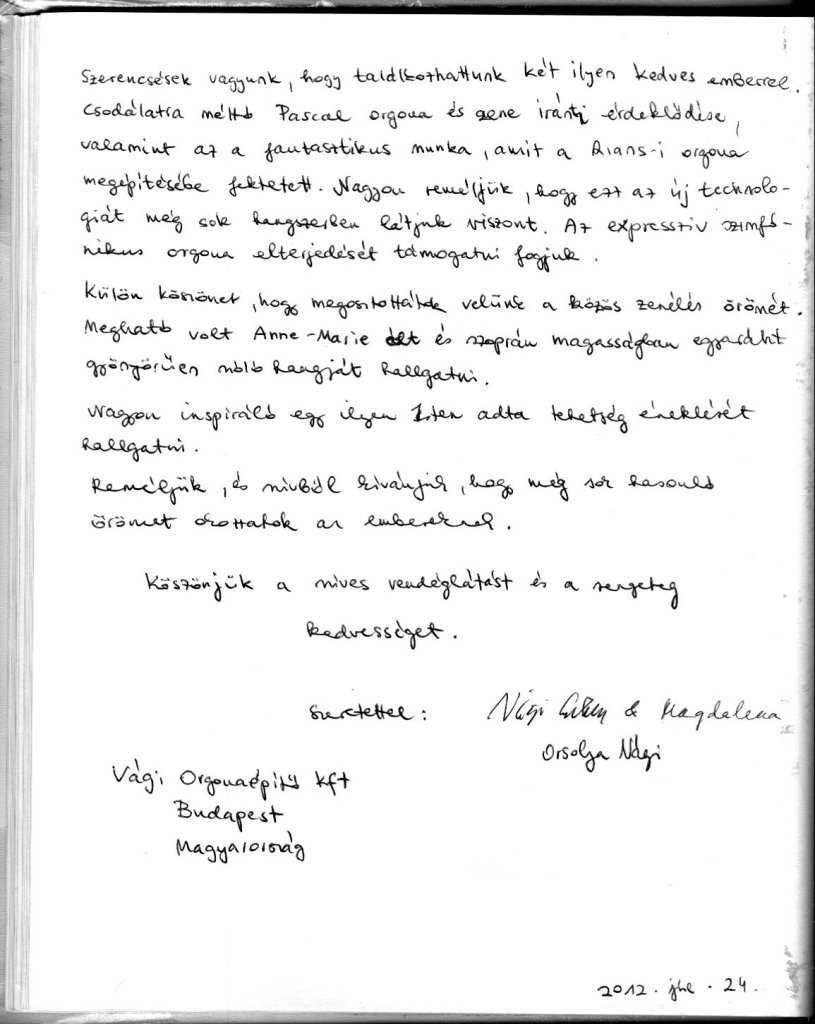 Szerencsések vagyunk, hogy találkozhattunk két ilyen kedves emberrel.
Csodálatra méltó Pascal orgona és zene iránti érdeklődése,
valamint az a fantasztikus munka, amit a Rians-i orgona
megépítésébe fektetett. Nagyon reméljük, hogy ezt az új technolo-
giát még sok hangszerben látjuk viszont. Az expresszív szimfó-
nikus orgona elterjedését támogatni fogjuk.
Külön köszönet, hogy megosztottátok velünk a közös zenélés örömét.
Megható volt Anne-Marie alt és szoprán magasságban egyaránt
gyönyörűen szóló hangját hallgatni.
Nagyon inspiráló egy ilyen Isten adta tehetség éneklését
hallgatni.
Reméljük, és szívből kívánjuk, hogy még sok hasonló
örömet okoztatok az embereknek.
Köszönjük a szíves vendéglátást és a rengeteg
kedvességet.
Szeretettel: & Magdelena
Orsolya Vági
Vági Orgonaépítő kft
Budapest
Magyarország
2012. 24.